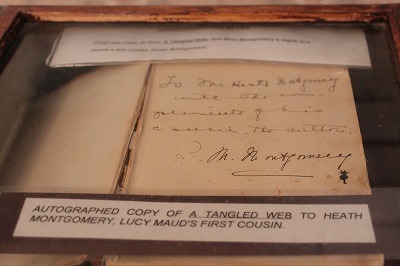 A TANGLED WEB
To Mr. Heath Montgomery
with the com-
pliments of his
cousin, the author,
M. Montgomery
AUTOGRAPHED COPY OF A TANGLED WEB TO HEATH
MONTGOMERY, LUCY MAUD'S FIRST COUSIN.